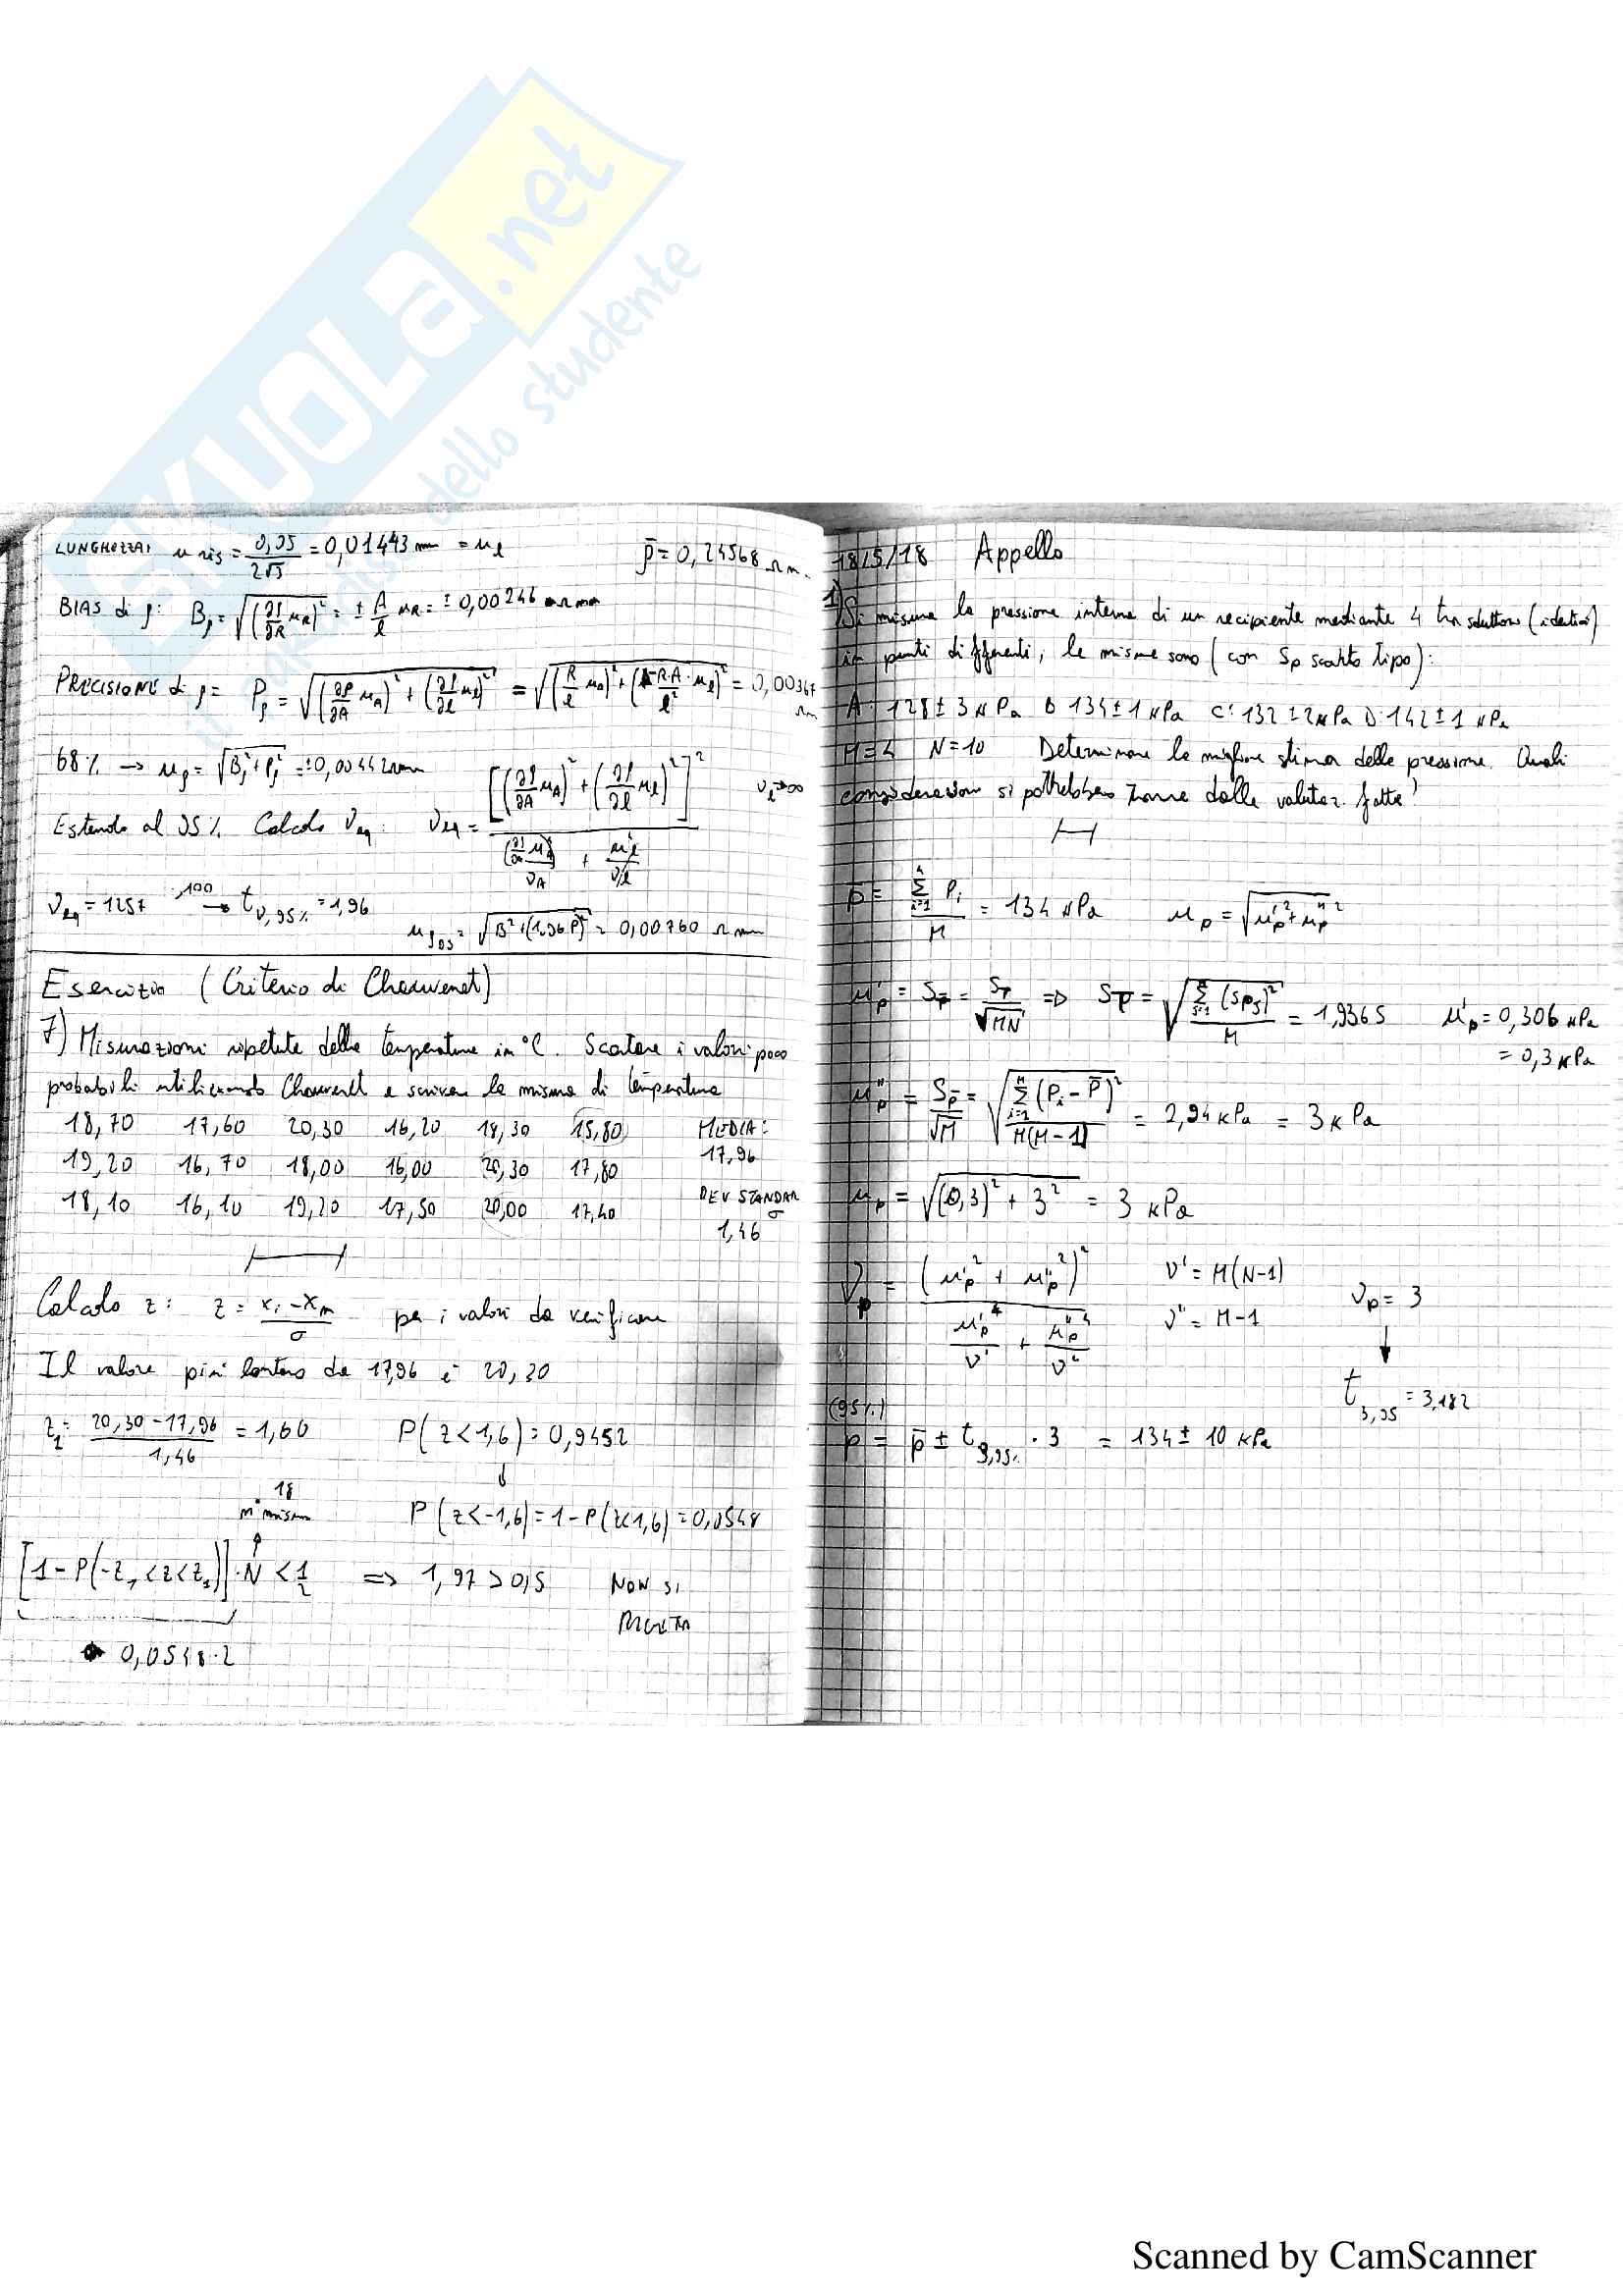 SKUOLA.net
il paradiso dello studente
LUNGHEZZA: u ris = 0,05 / 2√3 = 0,01443 mm = u_l    ρ̄ = 0,24568 Ωm.
BIAS di ρ: B_ρ = √((∂ρ/∂R u_R)²) = ± A/l u_R = ± 0,00246 Ωmm
PRECISIONE di ρ = P_ρ = √((∂ρ/∂A u_A)² + (∂ρ/∂l u_l)²) = √((R/l u_A)² + (R·A/l² · u_l)²) = 0,00367 Ωm
68% → u_ρ = √(B_ρ² + P_ρ²) = ±0,00442 Ωmm
Estendo al 95% Calcolo ν_eq: ν_eq = [(∂ρ/∂A u_A)² + (∂ρ/∂l u_l)²]² / ν_A + ν_l    ν_l → ∞
ν_eq = 1257 >100 → t_ν,95% = 1,96
u_ρ95 = √(B² + (1,96·P)²) = 0,00760 Ωmm
Esercizio (Criterio di Chauvenet)
7) Misurazioni ripetute della temperatura in °C. Scartare i valori poco
probabili utilizzando Chauvenet e scrivere la misura di temperatura
18,70 17,60 20,30 16,20 18,30 15,80 MEDIA:
17,96
19,20 16,70 18,00 16,00 20,30 17,80
18,10 16,10 19,20 17,50 20,00 17,40 DEV STANDAR σ
1,46
Calcolo z: z = x_i - x_m / σ per i valori da verificare
Il valore più lontano da 17,96 è 20,30
z_1 = 20,30 - 17,96 / 1,46 = 1,60    P(z<1,6) = 0,9452
18
n° misure    P(z<-1,6) = 1-P(z<1,6) = 0,0548
[1-P(-z_1<z<z_1)]·N < 1/2 ⇒ 1,97 > 0,5 NON SI
0,0548·2
18/5/18 Appello
1) Si misura la pressione interna di un recipiente mediante 4 trasduttori (identici)
in punti differenti, le misure sono (con Sp scarto tipo):
A: 128 ± 3 kPa B 134 ± 1 kPa C: 132 ± 2 kPa D: 142 ± 1 kPa
M=4 N=10 Determinare la migliore stima della pressione. Quali
considerazioni si potrebbero trarre dalle valutaz. fatte?
p̄ = Σ(i=1..4) P_i / M = 134 kPa    u_p = √(u'_p² + u''_p²)
u'_p = S_p̄ = S_p/√MN ⇒ S_p = √(Σ (Sp_j)² / M) = 1,9365    u'_p = 0,306 kPa
= 0,3 kPa
u''_p = S_p̄/√M = √(Σ(i=1..M) (P_i - P̄)² / M(M-1)) = 2,94 kPa = 3 kPa
u_p = √((0,3)² + 3²) = 3 kPa
ν_p = (u'_p² + u''_p²)² / (u'_p⁴/ν' + u''_p⁴/ν'')    ν' = M(N-1)    ν_p = 3
ν'' = M-1
t_3,95 = 3,182
(95%)
p = p̄ ± t_3,95% · 3 = 134 ± 10 kPa
Scanned by CamScanner